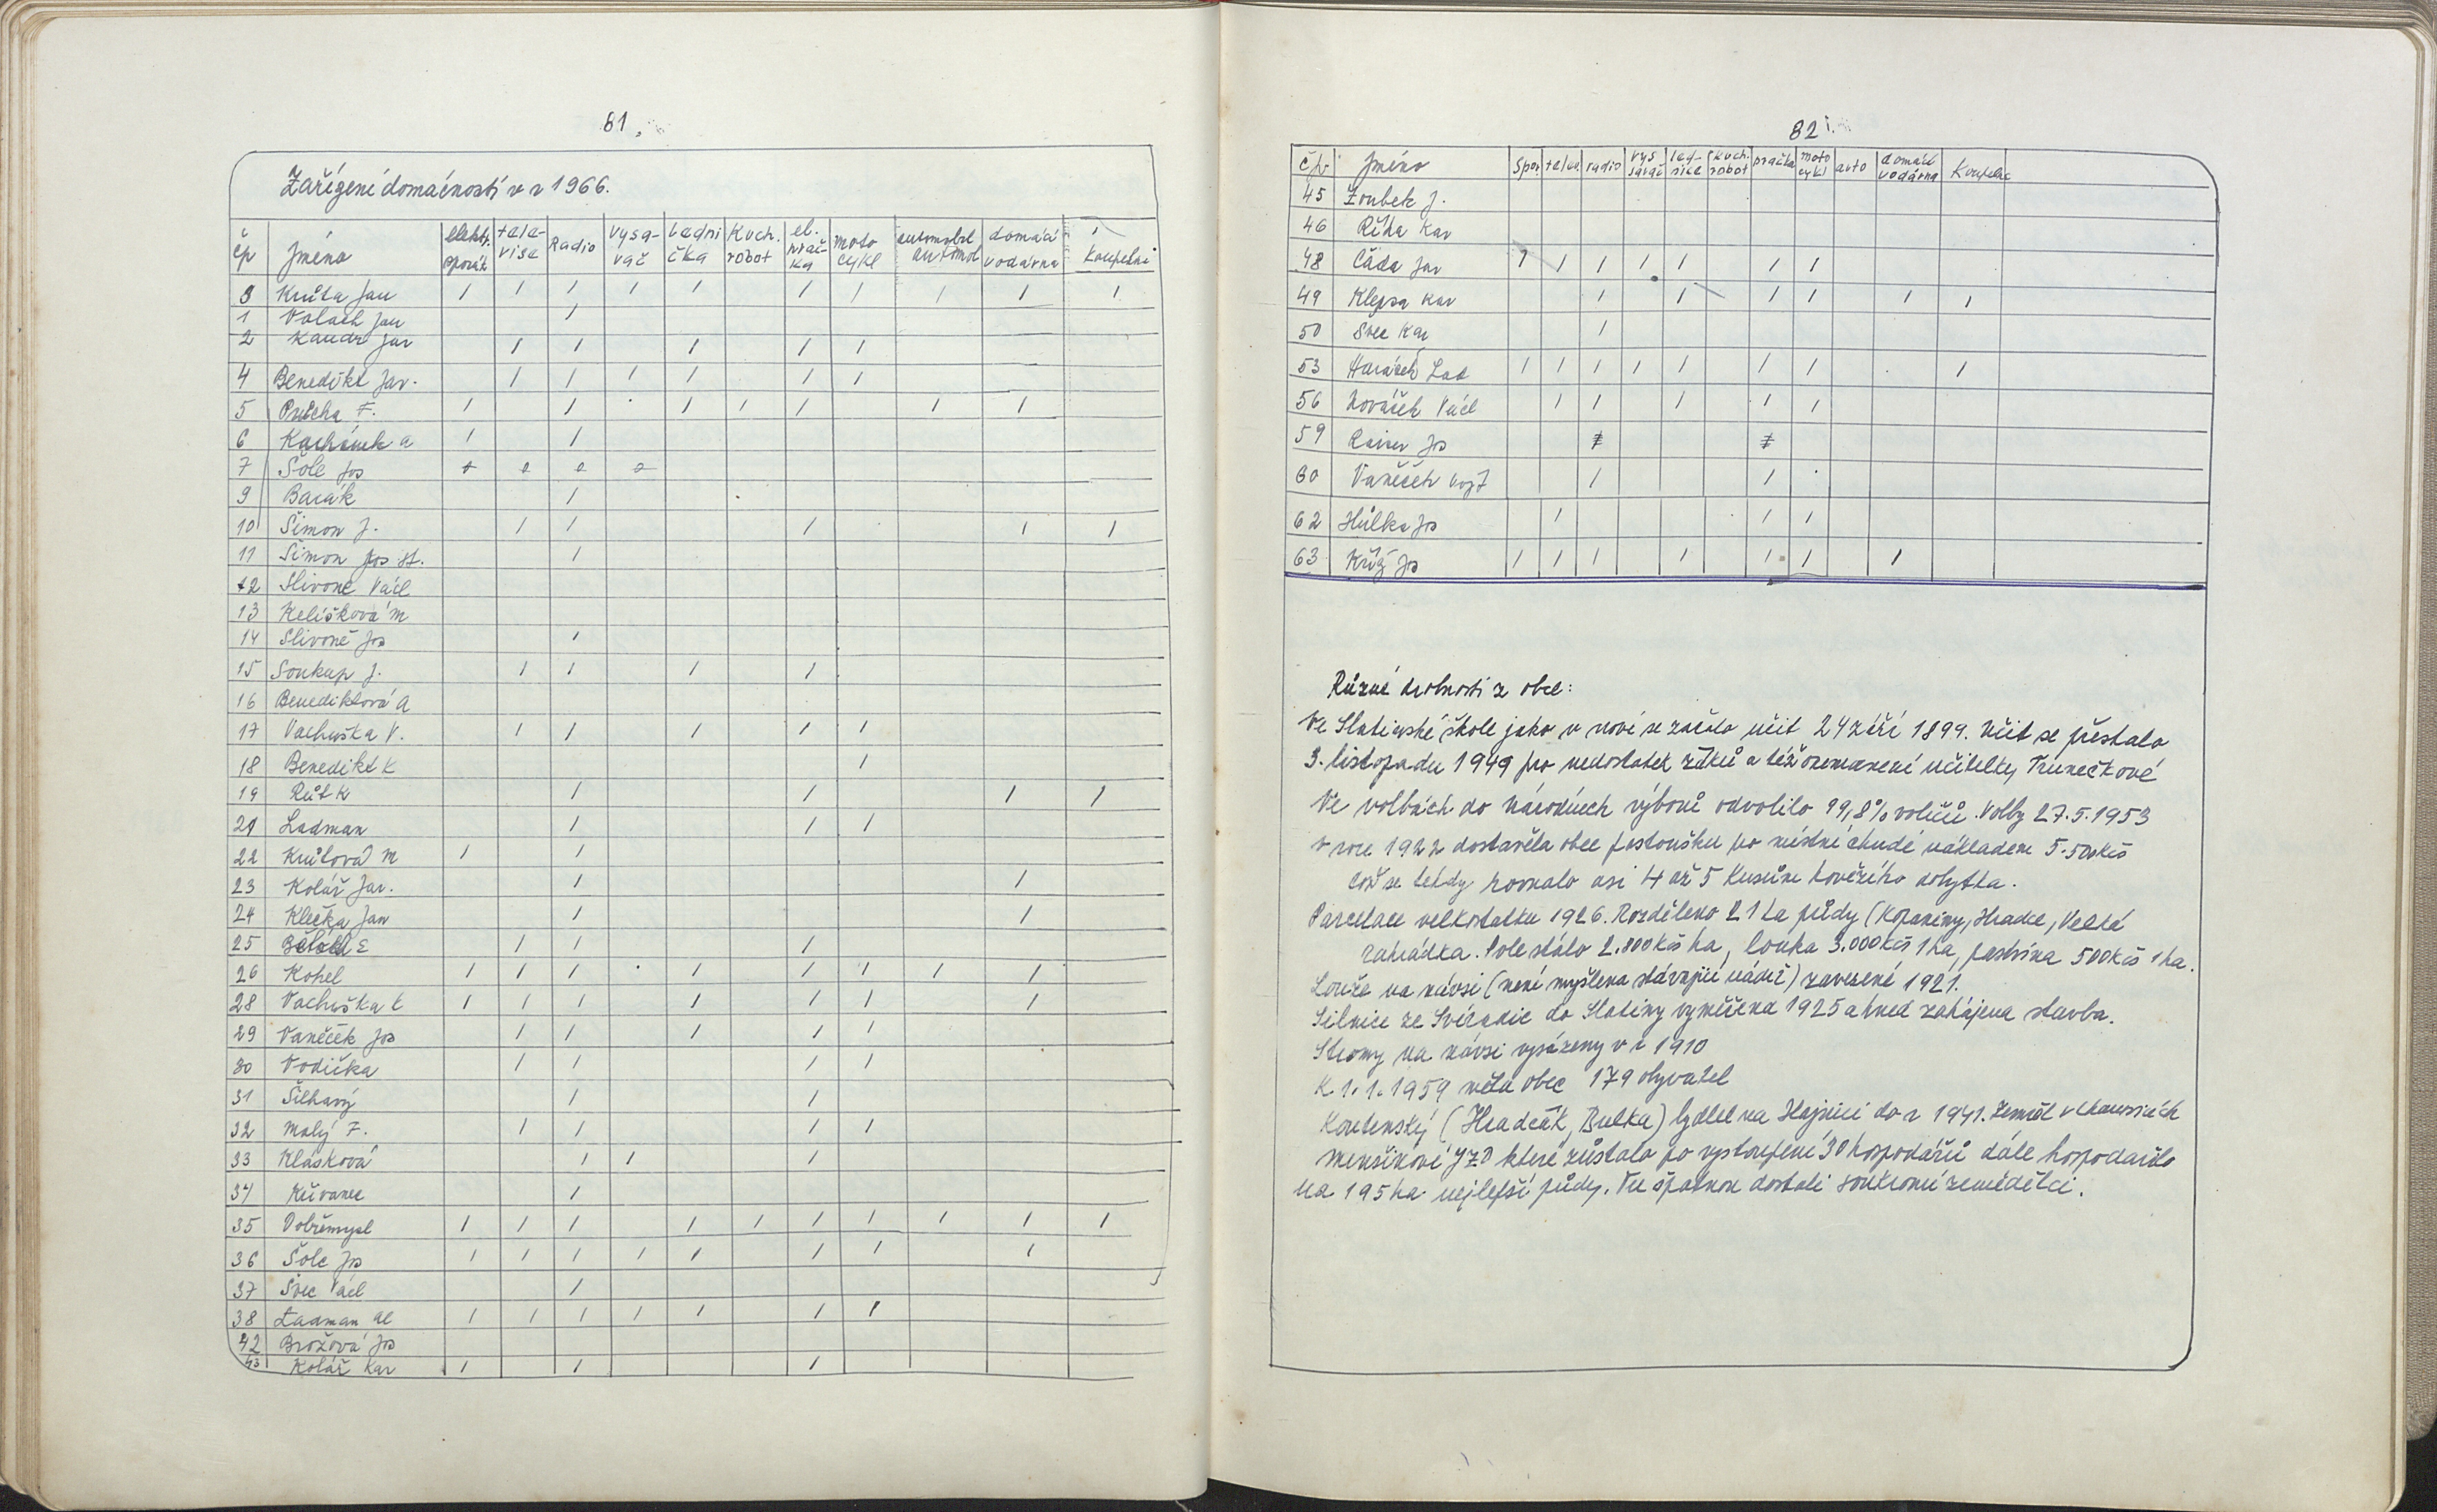 81.
Zařízení domácností v r 1966.
čp Jméno elektr. sporák tele-vise Radio vysa-vač Ledni čka Kuch. robot el. prač-ka moto cykl automobil domácí vodárna koupelni
3 Krůta Jan / / / / / / / / / /
1 Valach Jan /
2 Kaudr Jar / / / / /
4 Benedikt Jar. / / / / / /
5 Prücha F. / / / / / / /
6 Kachánek a / /
7 Šole Jos
9 Barák /
10 Šimon J. / / / / /
11 Šimon Jos st. /
12 Slivoně Václ
13 Kelišková M
14 Slivoně Jos /
15 Soukup J. / / / /
16 Benediktová A
17 Vachuška V. / / / / /
18 Benedikt K /
19 Růt K / / / /
20 Ladman / / /
22 Krůtová M / /
23 Kolář Jar. / /
24 Klečka Jan / /
25 E / / /
26 Kohel / / / / / / / /
28 Vachuška / / / / / / /
29 Vaněček Jos / / / / /
30 Vodička / / / /
31 Šilhavý / /
32 Malý F. / / / /
33 Klásková / / /
34 Křivanec /
35 Dobřemysl / / / / / / / / / /
36 Šole Jos / / / / / / / /
37 Švec Václ /
38 Ladman Al / / / / / / /
42 Brožová Jos
43 Kolář Kar / / /
82
čp Jméno Spor telev. radio vys savač led-nice kuch. robot pračka moto cykl auto domácí vodárna Koupelna
45 Zoubek J.
46 Říha Kar
48 Čáda Jar / / / / / / /
49 Klepsa Kar / / / / / /
50 Švec Kar /
53 Horáček Lad / / / / / / / /
56 Nováček Václ / / / / /
59 Raiser Jos
60 Vaněček Vojt / /
62 Hůlka Jos / / /
63 Kříž Jos / / / / / / /
Různé drobnosti z obce:
Ve Slatinské škole jako v nové se začalo učit 24 září 1899. Učit se přestalo
3. listopadu 1949 pro nedostatek žáků a též onemocnění učitelky Trunečkové
Ve volbách do Národních výborů odvolilo 99,8% voličů. Volby 27.5.1953
v roce 1922 dostavěla obec pastoušku po místní chudé nákladem 5.500Kčs
což se tehdy rovnalo asi 4 až 5 kusům hovězího dobytka.
Parcelace velkostatku 1926. Rozděleno 21 ha půdy (Kopaniny, Hradce, Velká
zahrádka. Pole stálo 2.800Kčs ha, louka 3.000Kčs 1ha, pastvina 500Kčs 1ha.
Louže na návsi (není myšlena stávající nádrž) zavezené 1921.
Silnice ze Svinadic do Slatiny vyměřena 1925 a hned zahájena stavba.
Stromy na návsi vysázeny v r 1910
K 1.1.1959 měla obec 179 obyvatel
Koutenský (Hradčák, Bulka) bydlel na Hájnici do r 1941. Zemřel v
Menšinové JZD které zůstalo po vystoupení 30 hospodářů dále hospodařilo
na 195 ha nejlepší půdy. Tu špatnou dostali soukromí zemědělci.